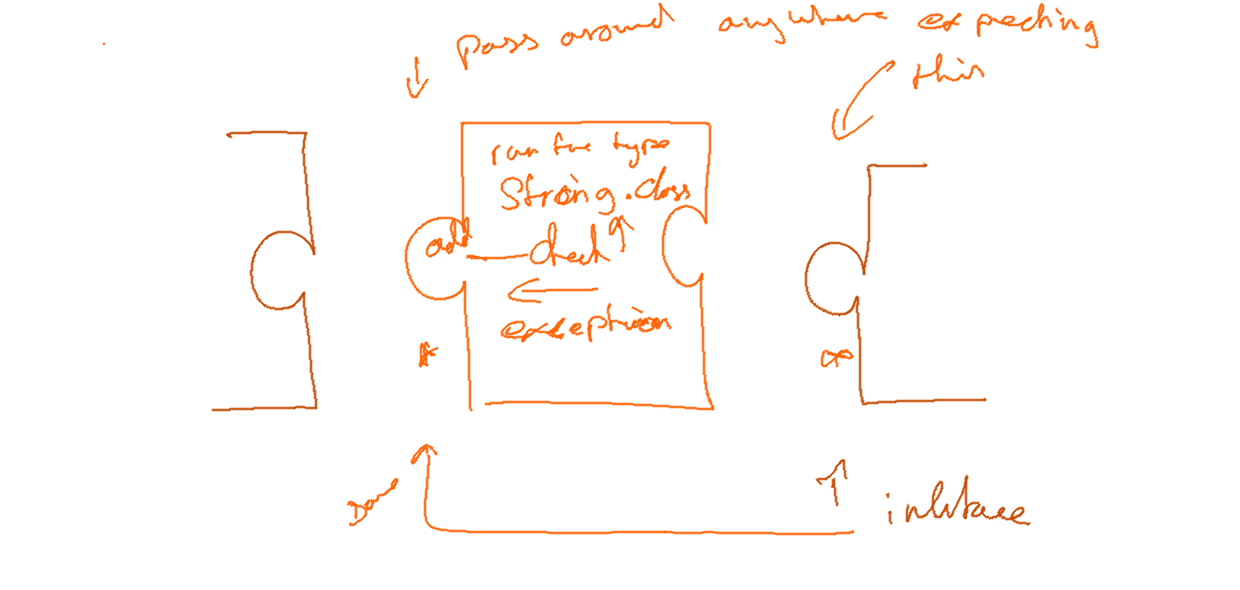 pass around anywhere expecting
this
run time type
Strong.class
add check
exception
Done